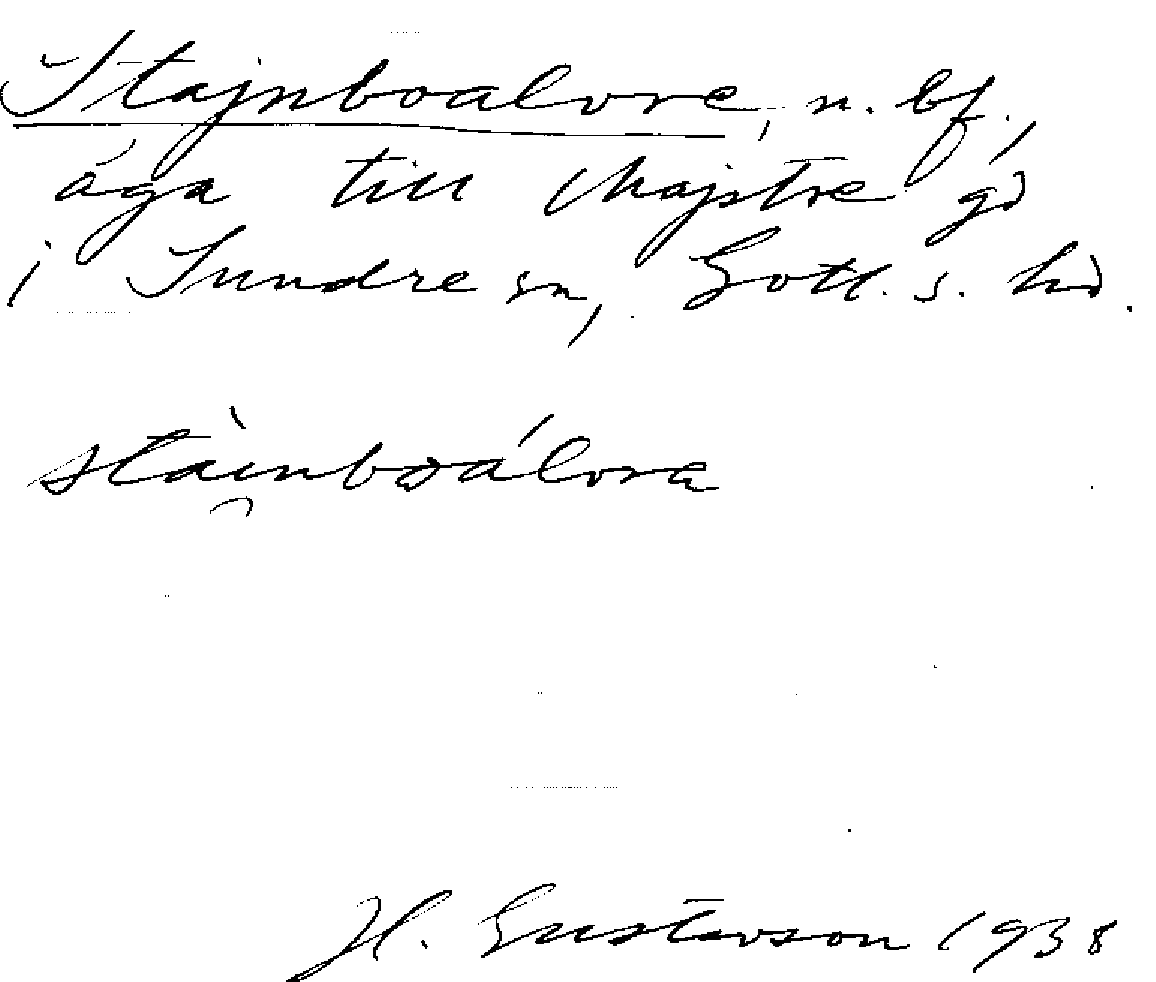 Stajnboalvre, n. bf.,
äga till Majstre gd
i Sundre sn, Gotl. s. hd.
stàinboálvrɐ
H. Gustavson 1938